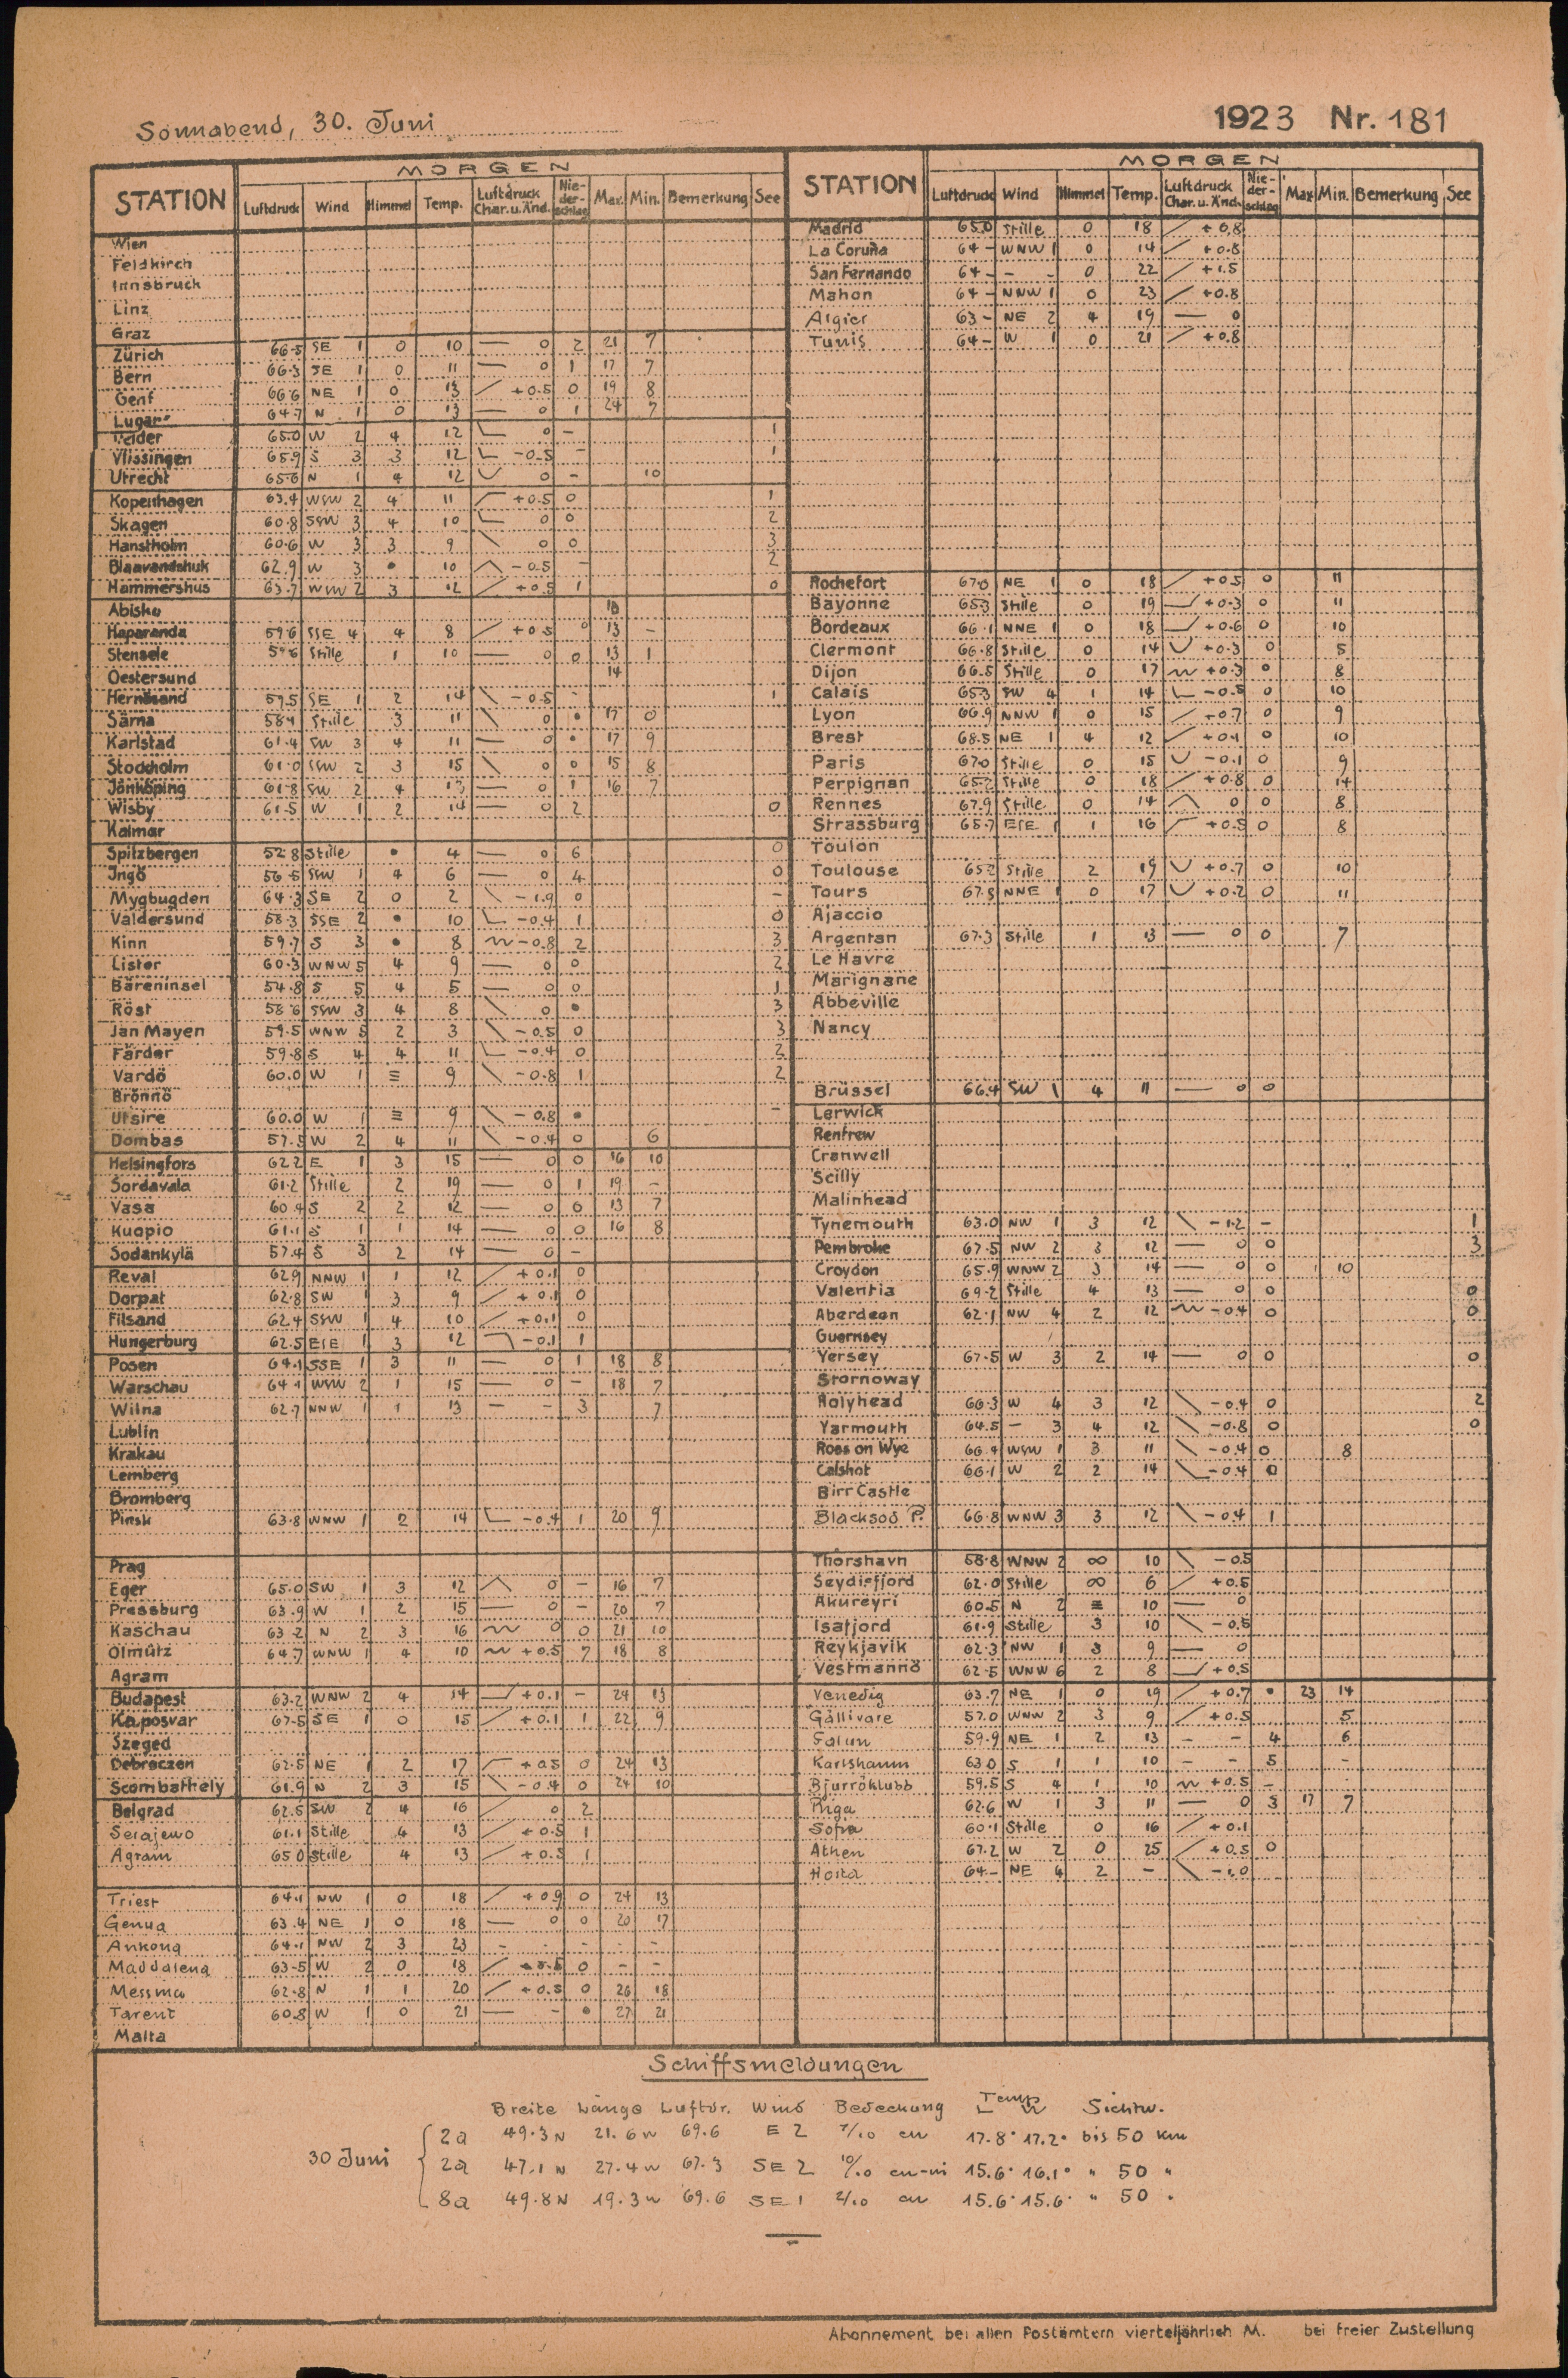 Sonnabend, 30. Juni
1923 Nr. 181
MORGEN
STATION Luftdruck Wind Himmel Temp. Luftdruck Char. u. Änd. Nie-der-schlag Max. Min. Bemerkung See
Wien
Feldkirch
Innsbruck
Linz
Graz
Zürich 66.5 SE 1 0 10 — 0 2 21 7
Bern 66.3 SE 1 0 11 — 0 1 17 7
Genf 66.6 NE 1 0 13 / +0.5 0 19 8
Lugano 64.7 N 1 0 13 — 0 1 24 7
Helder 65.0 W 2 4 12 0 – 1
Vlissingen 65.9 S 3 3 12 -0.5 – 1
Utrecht 65.6 N 1 4 12 0 – 10
Kopenhagen 63.4 WSW 2 4 11 +0.5 0 1
Skagen 60.8 SSW 3 4 10 0 0 2
Hanstholm 60.6 W 3 3 9 \ 0 0 3
Blaavandshuk 62.9 W 3 • 10 -0.5 – 2
Hammershus 63.7 WSW 2 3 12 / +0.5 1 0
Abisko 18
Haparanda 59.6 SSE 4 4 8 / +0.5 0 13 –
Stensele 59.6 Stille 1 10 — 0 0 13 1
Oestersund 14
Hernösand 59.5 SE 1 2 14 \ -0.5 – 1
Särna 58.1 Stille 3 11 \ 0 • 17 0
Karlstad 61.4 SW 3 4 11 — 0 • 17 9
Stockholm 61.0 SSW 2 3 15 \ 0 0 15 8
Jönköping 61.8 SW 2 4 13 — 0 1 16 7
Wisby 61.5 W 1 2 14 — 0 2 0
Kalmar
Spitzbergen 52.8 Stille • 4 — 0 6 0
Ingö 56.5 SSW 1 4 6 — 0 4 0
Mygbugden 64.3 SE 2 0 2 \ -1.9 0 –
Valdersund 58.3 SSE 2 • 10 -0.4 1 0
Kinn 59.7 S 3 • 8 -0.8 2 3
Lister 60.3 WNW 5 4 9 — 0 0 2
Bäreninsel 54.8 S 5 4 5 — 0 0 1
Röst 58.6 SSW 3 4 8 \ 0 • 3
Jan Mayen 59.5 WNW 5 2 3 \ -0.5 0 3
Färder 59.8 S 4 4 11 -0.4 0 2
Vardö 60.0 W 1 ≡ 9 \ -0.8 1 2
Brönnö
Utsire 60.0 W 1 ≡ 9 \ -0.8 • –
Dombas 57.5 W 2 4 11 \ -0.4 0 6
Helsingfors 62.2 E 1 3 15 — 0 0 16 10
Sordavala 61.2 Stille 2 19 — 0 1 19 –
Vasa 60.4 S 2 2 12 — 0 0 13 7
Kuopio 61.1 S 1 1 14 — 0 0 16 8
Sodankylä 57.4 S 3 2 14 — 0 –
Reval 62.9 NNW 1 1 12 / +0.1 0
Dorpat 62.8 SW 1 3 9 / +0.1 0
Filsand 62.4 SSW 1 4 10 / +0.1 0
Hungerburg 62.5 ESE 1 3 12 -0.1 1
Posen 64.1 SSE 1 3 11 — 0 1 18 8
Warschau 64.1 WSW 2 1 15 — 0 – 18 7
Wilna 62.7 NNW 1 1 13 – – 3 7
Lublin
Krakau
Lemberg
Bromberg
Pinsk 63.8 WNW 1 2 14 -0.4 1 20 9
Prag
Eger 65.0 SW 1 3 12 0 – 16 7
Pressburg 63.9 W 1 2 15 — 0 – 20 7
Kaschau 63.2 N 2 3 16 0 0 21 10
Olmütz 64.7 WNW 1 4 10 +0.5 7 18 8
Agram
Budapest 63.2 WNW 2 4 14 +0.1 – 24 13
Kaposvar 67.5 SE 1 0 15 / +0.1 1 22 9
Szeged
Debreczen 62.5 NE 1 2 17 +0.5 0 24 13
Scombathely 61.9 N 2 3 15 -0.4 0 24 10
Belgrad 62.5 SW 2 4 16 / 0 2
Serajewo 61.1 Stille 4 13 / +0.5 1
Agram 65.0 Stille 4 13 / +0.5 1
Triest 64.1 NW 1 0 18 / +0.9 0 24 13
Genua 63.4 NE 1 0 18 — 0 0 20 17
Ankona 64.1 NW 2 3 23 – – – – –
Maddalena 63.5 W 2 0 18 / +0.5 0 – –
Messina 62.8 N 1 1 20 / +0.5 0 26 18
Tarent 60.8 W 1 0 21 — – • 27 21
Malta
MORGEN
STATION Luftdruck Wind Himmel Temp. Luftdruck Char. u. Änd. Nie-der-schlag Max Min. Bemerkung See
Madrid 65.0 Stille 0 18 / +0.8
La Coruña 64 – WNW 1 0 14 / +0.8
San Fernando 64 – – – 0 22 / +1.5
Mahon 64 – NNW 1 0 23 / +0.8
Algier 63 – NE 2 4 19 — 0
Tunis 64 – W 1 0 21 / +0.8
Rochefort 67.0 NE 1 0 18 / +0.5 0 11
Bayonne 65.3 Stille 0 19 +0.3 0 11
Bordeaux 66.1 NNE 1 0 18 +0.6 0 10
Clermont 66.8 Stille 0 14 +0.3 0 5
Dijon 66.5 Stille 0 17 +0.3 0 8
Calais 65.3 SW 4 1 14 -0.5 0 10
Lyon 66.9 NNW 1 0 15 / +0.7 0 9
Brest 68.5 NE 1 4 12 +0.1 0 10
Paris 67.0 Stille 0 15 -0.1 0 9
Perpignan 65.2 Stille 0 18 / +0.8 0 14
Rennes 67.9 Stille 0 14 0 0 8
Strassburg 65.7 ESE 1 1 16 +0.5 0 8
Toulon
Toulouse 65.2 Stille 2 19 +0.7 0 10
Tours 67.5 NNE 1 0 17 +0.2 0 11
Ajaccio
Argentan 67.3 Stille 1 13 — 0 0 7
Le Havre
Marignane
Abbeville
Nancy
Brüssel 66.4 SW 1 4 11 — 0 0
Lerwick
Renfrew
Cranwell
Scilly
Malinhead
Tynemouth 63.0 NW 1 3 12 \ -1.2 – 1
Pembroke 67.5 NW 2 3 12 — 0 0 3
Croydon 65.9 WNW 2 3 14 — 0 0 10
Valentia 69.2 Stille 4 13 — 0 0 0
Aberdeen 62.1 NW 4 2 12 -0.4 0 0
Guernsey
Yersey 67.5 W 3 2 14 — 0 0 0
Stornoway
Holyhead 66.3 W 4 3 12 \ -0.4 0 2
Yarmouth 64.5 – 3 4 12 \ -0.8 0 0
Ross on Wye 66.4 WSW 1 3 11 \ -0.4 0 8
Calshot 66.1 W 2 2 14 -0.4 0
Birr Castle
Blacksod P. 66.8 WNW 3 3 12 \ -0.4 1
Thorshavn 58.8 WNW 2 ∞ 10 \ -0.5
Seydisfjord 62.0 Stille ∞ 6 / +0.5
Akureyri 60.5 N 2 ≡ 10 — 0
Isafjord 61.9 Stille 3 10 \ -0.5
Reykjavik 62.3 NW 1 3 9 — 0
Vestmannö 62.5 WNW 6 2 8 +0.5
Venedig 63.7 NE 1 0 19 / +0.7 • 23 14
Gällivare 57.0 WNW 2 3 9 / +0.5 5
Falun 59.9 NE 1 2 13 – – 4 6
Karlshamn 63.0 S 1 1 10 – – 5 –
Bjurröklubb 59.5 S 4 1 10 +0.5 –
Riga 62.6 W 1 3 11 — 0 3 17 7
Sofia 60.1 Stille 0 16 / +0.1
Athen 67.2 W 2 0 25 / +0.5 0
Horta 64– NE 4 2 – \ -1.0
Schiffsmeldungen
Breite Länge Luftdr. Wind Bedeckung Temp L W Sichtw.
30 Juni
2a 49.3 N 21.6 W 69.6 E 2 7/10 cu 17.8° 17.2° bis 50 km
2a 47.1 N 27.4 W 67.3 SE 2 10/10 cu-ni 15.6° 16.1° " 50 "
8a 49.8 N 19.3 W 69.6 SE 1 2/10 cu 15.6° 15.6° " 50 "
Abonnement bei allen Postämtern vierteljährlich M. bei freier Zustellung